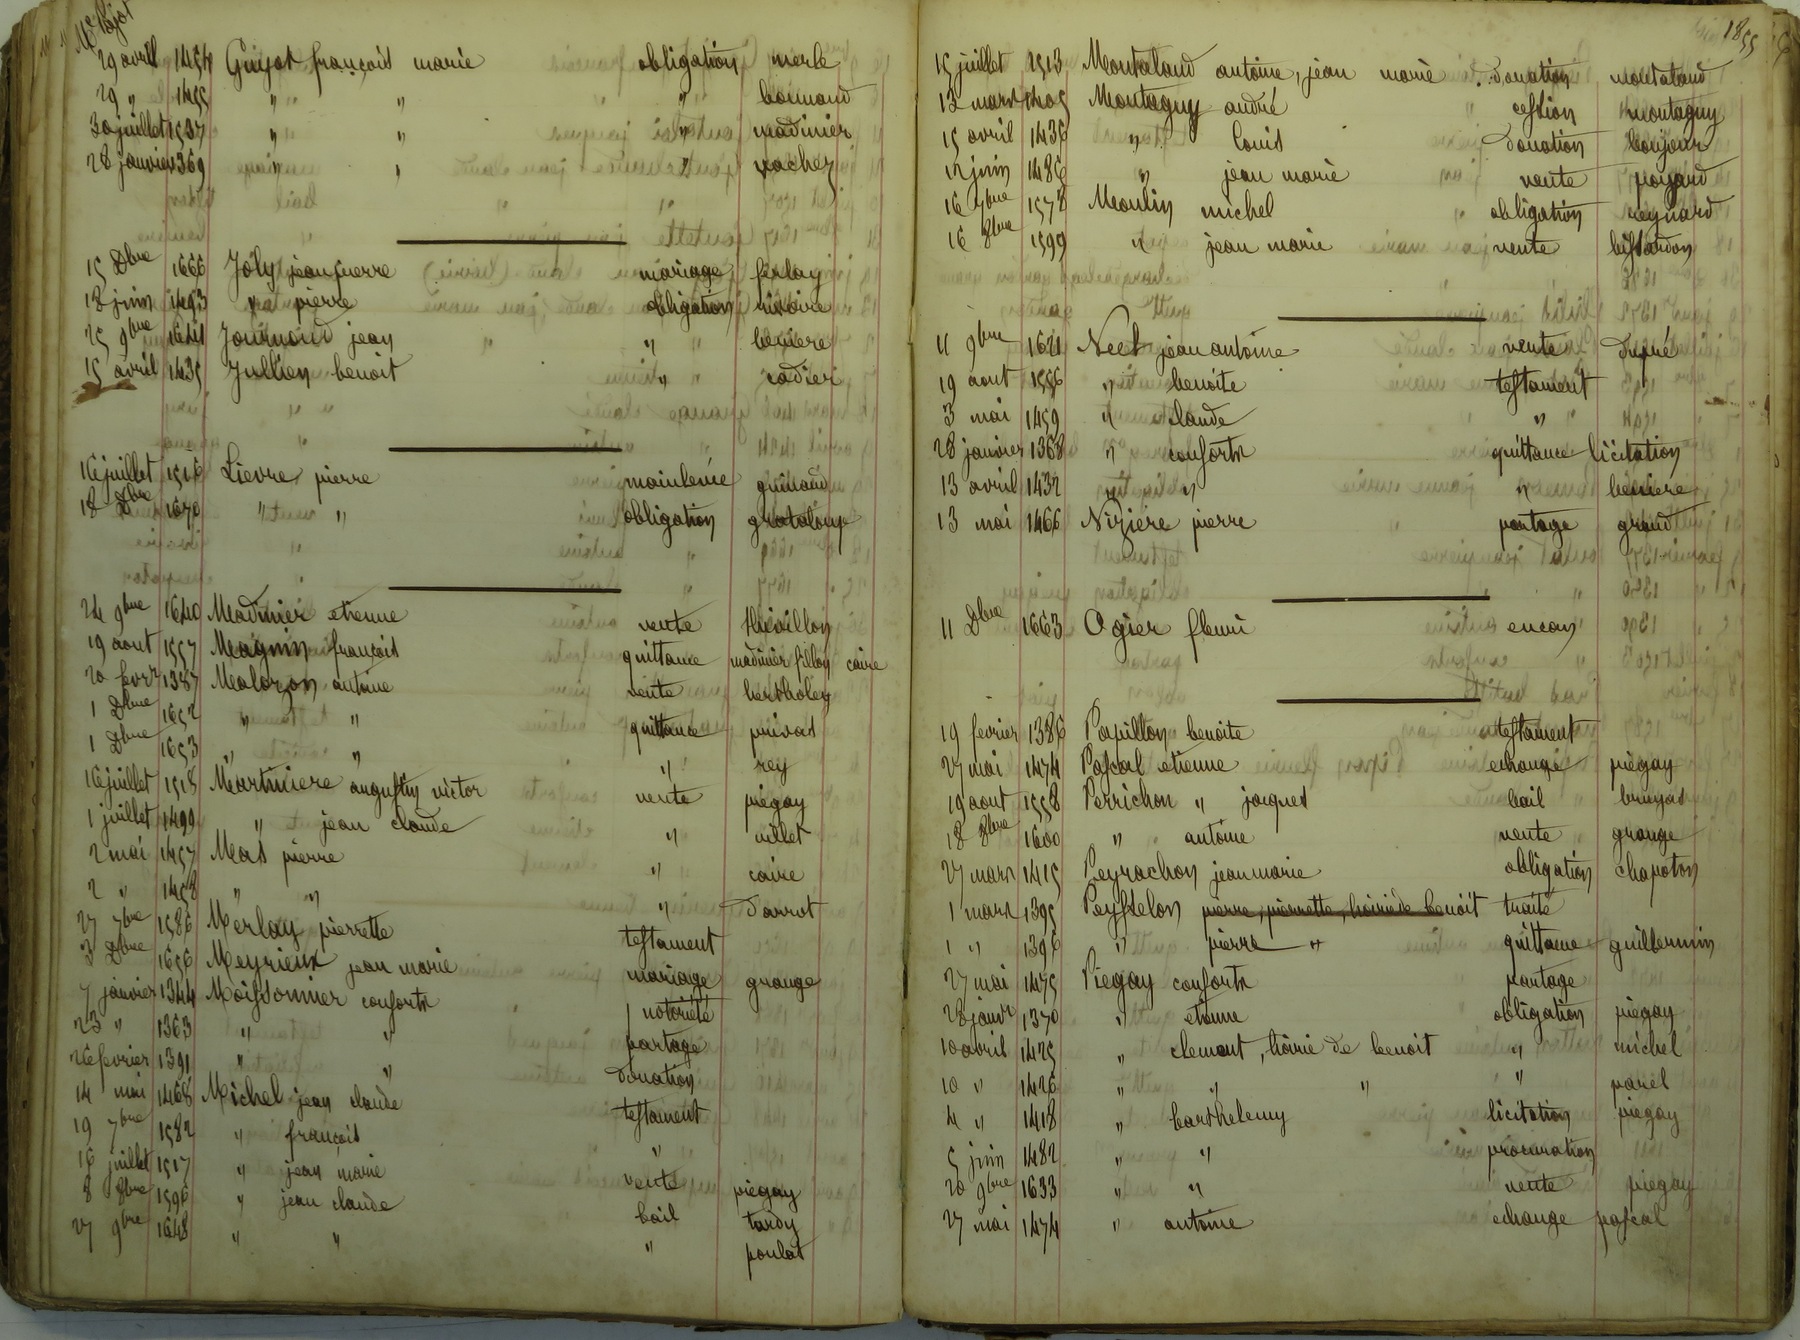 Me Pajot
29 avril 1454 Guyot françois marie obligation merle
29 " 1455 " " "
30 juillet 1537 " " " madinier
28 janvier 1369 " " " vacher
15 Dbre 1666 Joly jean pierre mariage ferlay
18 juin 1493 " pierre obligation
25 9bre 1641 Journoud jean "
15 avril 1435 Jullien benoit " cadier
16 juillet 1516 Lievre pierre mainlevée
18 Dbre 1670 " " obligation grataloup
24 9bre 1640 Madinier etienne vente thevillon
19 aout 1557 Magnin françois quittance madinier fillon caire
20 fevr 1387 Malozon antoine vente bertholey
1 Dbre 1652 " " quittance privas
1 Dbre 1653 " " " rey
16 juillet 1518 Martiniere augustin victor vente piégay
1 juillet 1499 " jean claude " villet
2 mai 1457 Mas pierre " caire
2 " 1458 " " " Darrot
27 7bre 1586 Merlay pierrette testament
3 Dbre 1656 Meyrieux jean marie mariage grange
7 janvier 1344 Moissonnier conforts notoriété
23 " 1363 " " partage
26 fevrier 1391 " " donation
14 mai 1468 Michel jean claude testament
19 7bre 1582 " françois "
16 juillet 1517 " jean marie vente piégay
8 8bre 1596 " jean claude bail tardy
27 9bre 1648 " " " poulat
1855
15 juillet 1513 Montaland antoine, jean marie donation montaland
12 mars 1405 Montagny andré cession montagny
15 avril 1436 " louis donation boujour
12 juin 1486 " jean marie vente poyard
16 7bre 1578 Moulin michel obligation reynard
16 8bre 1599 " jean marie vente bissardon
11 9bre 1621 Neel jean antoine vente Dupré
19 aout 1556 " benoite testament
3 mai 1459 " claude "
28 janvier 1368 " conforts quittance licitation
13 avril 1432 " " "
13 mai 1466 Niziere pierre partage grand
11 Dbre 1663 Ogier fleuri encan
19 fevrier 1386 Papillon benoite testament
27 mai 1474 Pascal etienne echange piégay
19 aout 1558 Perrichon " jacques bail bruyas
18 8bre 1600 " antoine vente grange
27 mars 1415 Peyrachon jean marie obligation chapoton
1 mars 1395 Peysselon pierre, pierrette, hoirie de benoit traité
1 " 1396 " pierre " quittance guillermin
27 mai 1475 Piegay conforts partage
28 janvr 1370 " etienne obligation piégay
10 avril 1425 " clement, hoirie de benoit " michel
10 " 1426 " " " "
4 " 1418 " barthelemy licitation piegay
5 juin 1482 " " procuration
20 9bre 1633 " " vente piegay
27 mai 1474 " antoine echange pascal